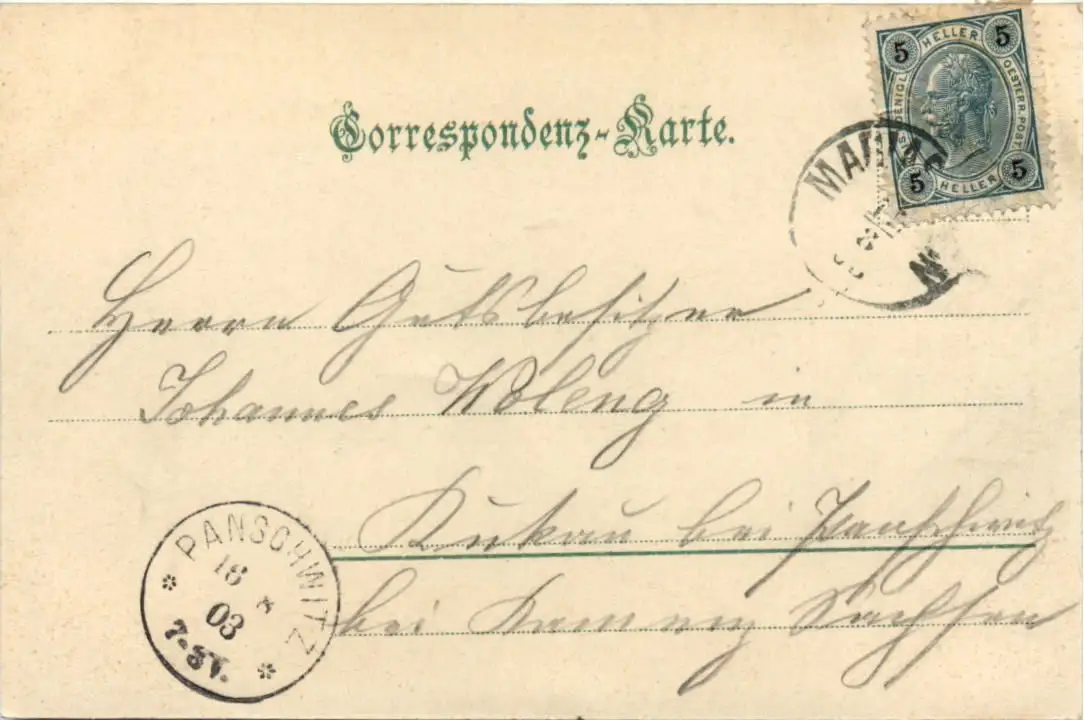 Correspondenz-Karte.
5 HELLER 5
OESTERR. POST
5 HELLER 5
Herrn Gutsbesitzer
Johannes Wobeng in
Kukau bei Panschwitz
bei Kamenz Sachsen
PANSCHWITZ
18
03
7-8V.